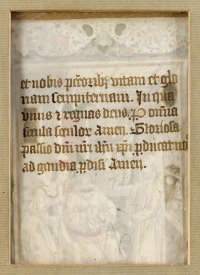 et nobis pctoribz vitam et glo
riam sempiternam. In qua
viuis et regnas deus. P omnia
secula seculor Amen. Gloriosa
passio dni nri ihu xpi pducat nos
ad gaudia pdisi Amen.